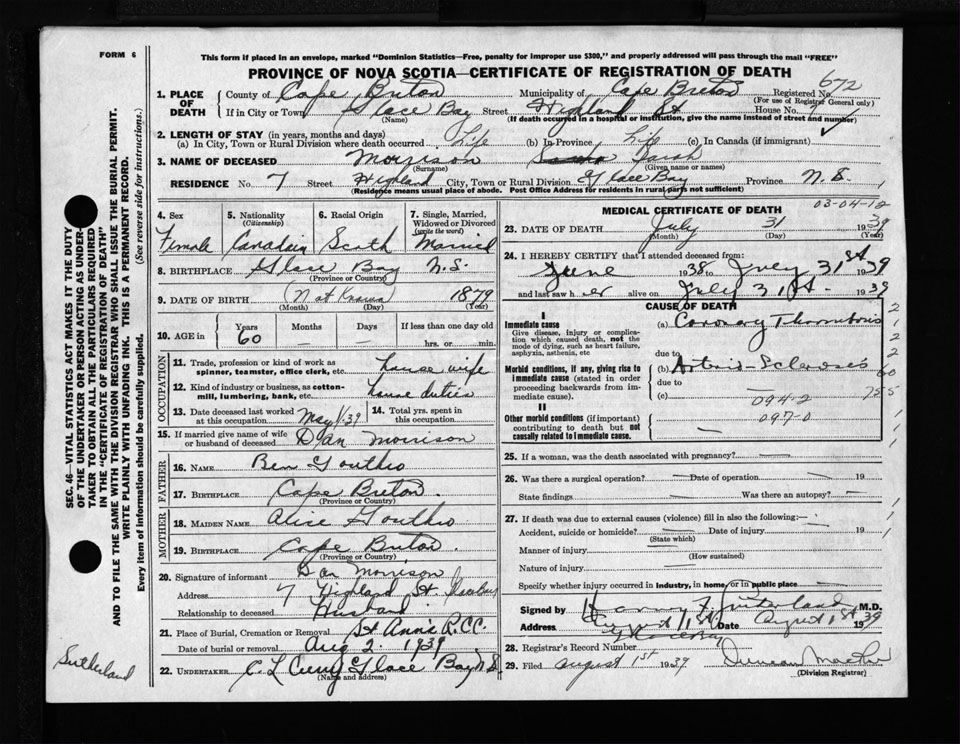 FORM 6
This form if placed in an envelope, marked "Dominion Statistics—Free, penalty for improper use $300," and properly addressed will pass through the mail "FREE"
PROVINCE OF NOVA SCOTIA—CERTIFICATE OF REGISTRATION OF DEATH
672
1. PLACE OF DEATH
County of Cape Breton Municipality of Cape Breton Registered No.
(For use of Registrar General only)
If in City or Town Glace Bay Street Highland St House No. 7
(Name) (If death occurred in a hospital or institution, give the name instead of street and number)
2. LENGTH OF STAY (in years, months and days)
(a) In City, Town or Rural Division where death occurred Life (b) In Province Life (c) In Canada (if immigrant)
3. NAME OF DECEASED Morrison Sarah
(Surname) (Given name or names)
RESIDENCE No. 7 Street Highland City, Town or Rural Division Glace Bay Province N.S.
(Residence means usual place of abode. Post Office Address for residents in rural parts not sufficient)
4. Sex Female
5. Nationality (Citizenship) Canadain
6. Racial Origin Scoth
7. Single, Married, Widowed or Divorced (write the word) Married
8. BIRTHPLACE Glace Bay N.S.
(Province or Country)
9. DATE OF BIRTH (Not Known 1879
(Month) (Day) (Year)
10. AGE in Years Months Days If less than one day old
60 — — hrs. or min.
OCCUPATION
11. Trade, profession or kind of work as spinner, teamster, office clerk, etc. house wife
12. Kind of industry or business, as cotton-mill, lumbering, bank, etc. house duties
13. Date deceased last worked at this occupation May 1/39
14. Total yrs. spent in this occupation
15. If married give name of wife or husband of deceased Dan Morrison
FATHER
16. NAME Ben
17. BIRTHPLACE Cape Breton.
(Province or Country)
MOTHER
18. MAIDEN NAME Alice
19. BIRTHPLACE Cape Breton.
(Province or Country)
20. Signature of informant Dan Morrison
Address 7 Highland St. Glace Bay
Relationship to deceased Husband
21. Place of Burial, Cremation or Removal St Ann's R.C.C.
Date of burial or removal Aug 2. 1939
22. UNDERTAKER C. L. Curry Glace Bay N.S.
(Name and address)
MEDICAL CERTIFICATE OF DEATH
03-04-12
23. DATE OF DEATH July 31 1939
(Month) (Day) (Year)
24. I HEREBY CERTIFY that I attended deceased from:
June 1938 to July 31st 1939
and last saw her alive on July 31st. 1939
CAUSE OF DEATH
I
Immediate cause
Give disease, injury or complication which caused death, not the mode of dying, such as heart failure, asphyxia, asthenia, etc
(a) Coronary Thrombosis
due to
Morbid conditions, if any, giving rise to immediate cause (stated in order proceeding backwards from immediate cause).
(b) Arterio-Sclerosis
due to
(c) 094-2
097-0
II
Other morbid conditions (if important) contributing to death but not causally related to immediate cause.
25. If a woman, was the death associated with pregnancy? —
26. Was there a surgical operation? — Date of operation — 19
State findings — Was there an autopsy? —
27. If death was due to external causes (violence) fill in also the following:—
Accident, suicide or homicide? — Date of injury — 19
(State which)
Manner of injury —
(How sustained)
Nature of injury —
Specify whether injury occurred in industry, in home, or in public place —
Signed by Harvey F. Sutherland M.D.
Address Glace Bay Date August 1st 1939
August 1st
28. Registrar's Record Number
29. Filed August 1st 1939 Duncan
(Division Registrar)
SEC. 46—VITAL STATISTICS ACT MAKES IT THE DUTY
OF THE UNDERTAKER OR PERSON ACTING AS UNDERTAKER TO OBTAIN ALL THE PARTICULARS REQUIRED
IN THE "CERTIFICATE OF REGISTRATION OF DEATH"
AND TO FILE THE SAME WITH THE DIVISION REGISTRAR WHO SHALL ISSUE THE BURIAL PERMIT.
WRITE PLAINLY WITH UNFADING INK. THIS IS A PERMANENT RECORD.
Every item of information should be carefully supplied. (See reverse side for instructions.)
Sutherland